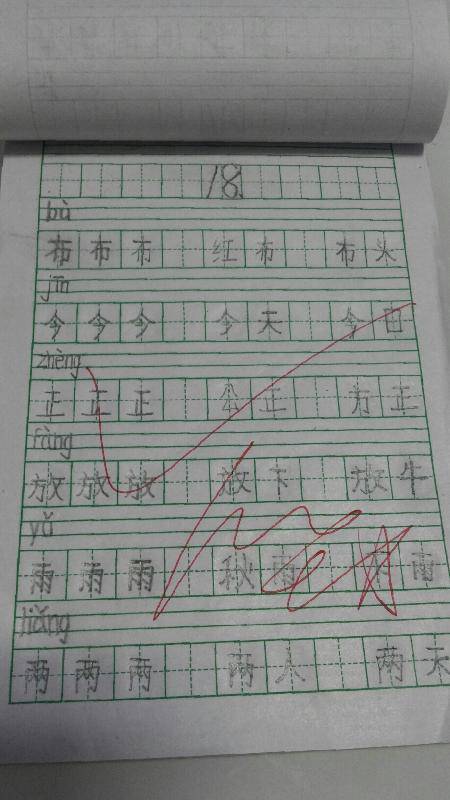 18.
bù
布 布 布 红 布 布 头
jīn
今 今 今 今 天 今 日
zhèng
正 正 正 公 正 方 正
fàng
放 放 放 放 下 放 牛
yǔ
雨 雨 雨 秋 雨 雨
liǎng
两 两 两 两 人 两 天